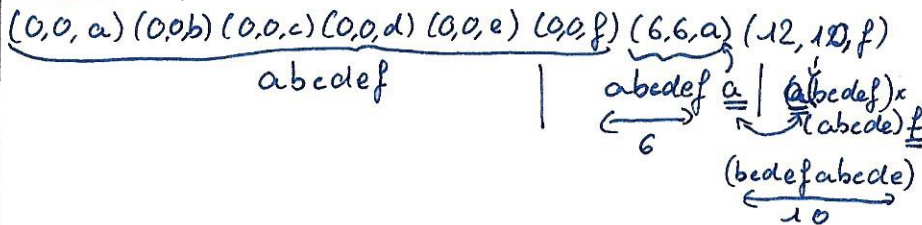 (0,0,a) (0,0,b) (0,0,c) (0,0,d) (0,0,e) (0,0,f) (6,6,a) (12,10,f)
abcdef | abcdef a | a(bcdef)x
6 (abcde) f
(bcdefabcde)
10